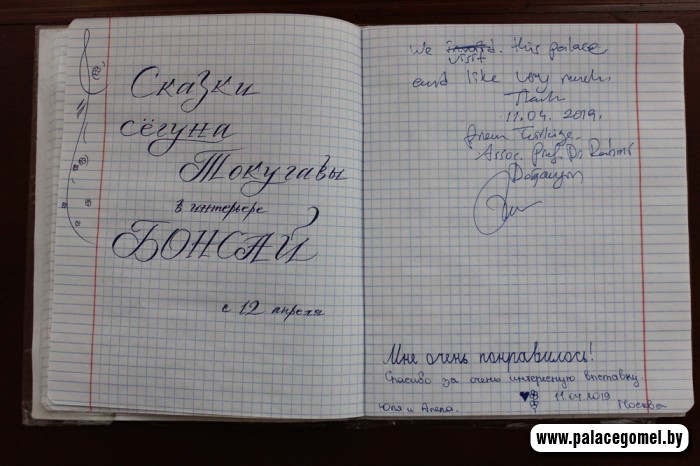 Сказки
сёгуна
Токугавы
в интерьере
БОНСАЙ
с 12 апреля
We visit this palace
and like very much.
11.04. 2019.
from Türkiye.
Assoc. Prof. Dr.
Мне очень понравилось!
Спасибо за очень интересную выставку
11.04.2019
Юля и Москва
www.palacegomel.by